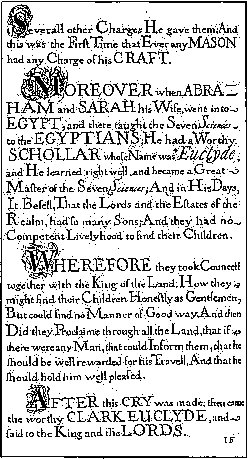 Severall other Charges He gave them. And
this was the First Time that Ever any MASON
had any Charge of his CRAFT.
MOREOVER when ABRA-
HAM and SARAH his Wife, went into
EGYPT; and there taught the Seven Sciences
to the EGYPTIANS; He had a Worthy
SCHOLLAR whose Name was Euclyde,
and He learned right well and became a Great
Master of the Seven Sciences; And in His Days,
It Befell, That the Lords and the Estates of the
Realm, had so many Sons; And they had no
Competent Livelyhood to find their Children.
WHEREFORE they took Councell
together with the King of the Land; How they
might find their Children Honestly as Gentlemen;
But could find no Manner of Good way. And then
Did they Proclaime through all the Land, that if
there were any Man, that could Inform them, that he
should be well rewarded for his Travell, And that he
should hold him well pleased.
AFTER this CRY was made; then came
the worthy CLARK EUCLYDE, and
said to the King and his LORDS.
15